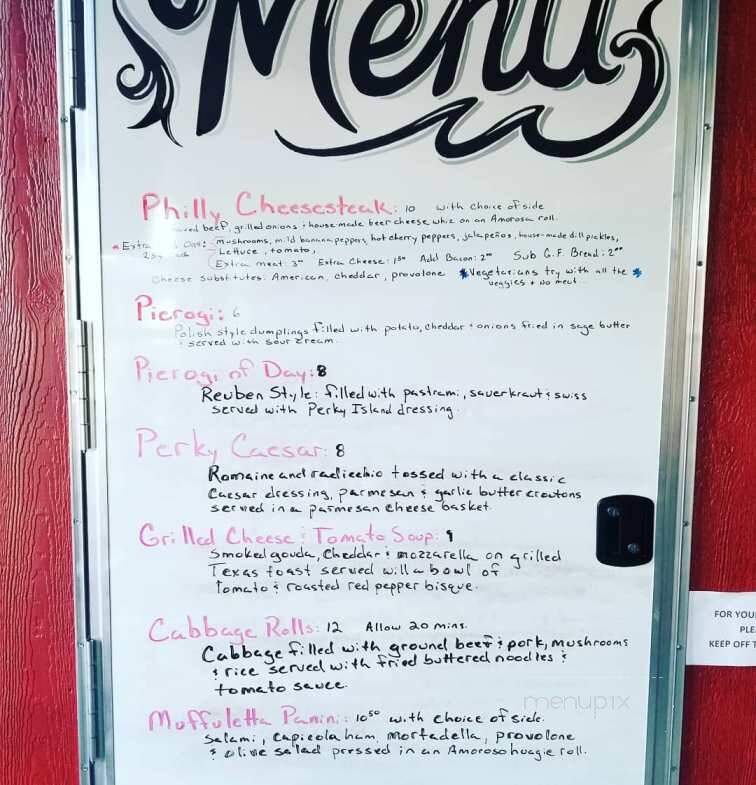 Menu
Philly Cheesesteak: 10 with choice of side
beef, grilled onions & house made beer cheese whiz on an Amorosa roll.
mushrooms, mild banana peppers, hot cherry peppers, jalapeños, house-made dill pickles,
Lettuce, tomato,
Extra meat: 3⁰⁰ Extra Cheese: 1⁵⁰ Add Bacon: 2⁰⁰ Sub G.F. Bread: 2⁰⁰
Cheese Substitutes: American, cheddar, provolone Vegetarians try with all the
veggies & no meat
Pierogi: 6
Polish style dumplings filled with potato, cheddar & onions fried in sage butter
& served with sour cream.
Pierogi of Day: 8
Reuben Style: filled with pastrami, sauerkraut & swiss
served with Perky Island dressing.
Perky Caesar: 8
Romaine and radicchio tossed with a classic
Caesar dressing, parmesan & garlic butter croutons
served in a parmesan cheese basket.
Grilled Cheese & Tomato Soup: 9
Smoked gouda, cheddar & mozzarella on grilled
Texas toast served will a bowl of
Tomato & roasted red pepper bisque.
Cabbage Rolls: 12 Allow 20 mins.
Cabbage filled with ground beef & pork, mushrooms
& rice served with fried buttered noodles &
tomato sauce.
Muffuletta Panini: 10⁵⁰ with choice of side.
Salami, capicola ham, mortadella, provolone
& olive salad pressed in an Amoroso huagie roll.
FOR YOU
PLE
KEEP OFF T
menupix